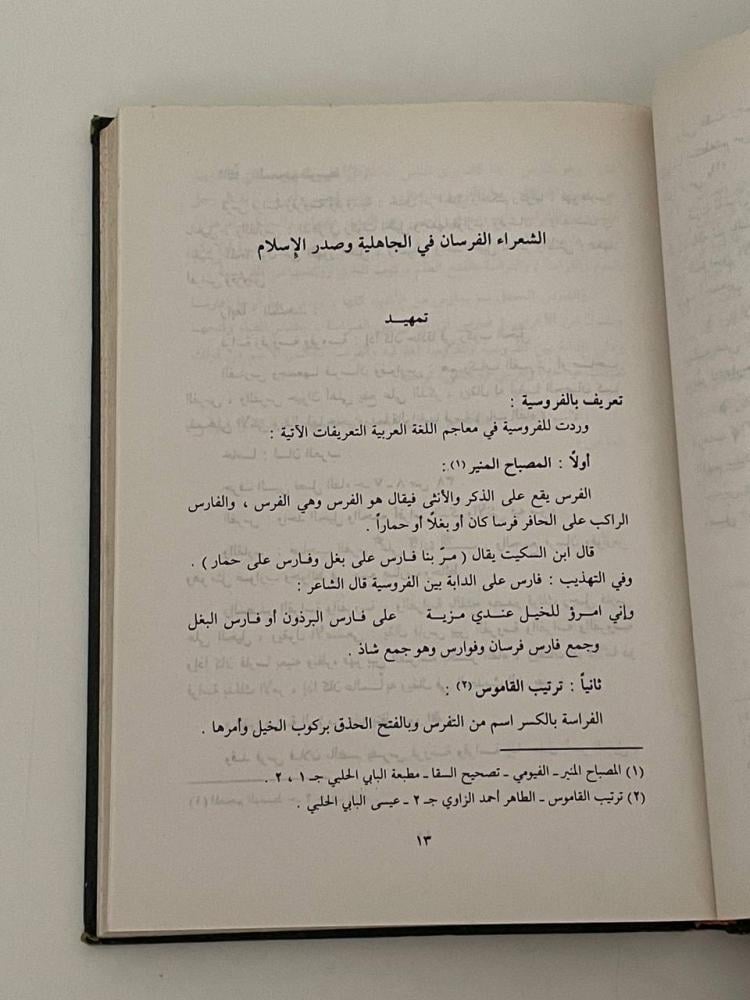 الشعراء الفرسان في الجاهلية وصدر الإسلام
تمهيـــد
تعريف بالفروسية :
وردت للفروسية في معاجم اللغة العربية التعريفات الآتية :
أولاً : المصباح المنير (١) :
الفرس يقع على الذكر والأنثى فيقال هو الفرس وهي الفرس ، والفارس
الراكب على الحافر فرسا كان أو بغلاً أو حماراً .
قال ابن السكيت يقال ( مرّ بنا فارس على بغل وفارس على حمار ) .
وفي التهذيب : فارس على الدابة بين الفروسية قال الشاعر :
وإني امرؤ للخيل عندي مزية على فارس البرذون أو فارس البغل
وجمع فارس فرسان وفوارس وهو جمع شاذ .
ثانياً : ترتيب القاموس (٢) :
الفراسة بالكسر اسم من التفرس وبالفتح الحذق بركوب الخيل وأمرها .
(١) المصباح المنير ـ الفيومي ـ تصحيح السقا ـ مطبعة البابي الحلبي جـ ١ ، ٢ .
(٢) ترتيب القاموس ـ الطاهر أحمد الزاوي جـ ٢ ـ عيسى البابي الحلبي .
١٣